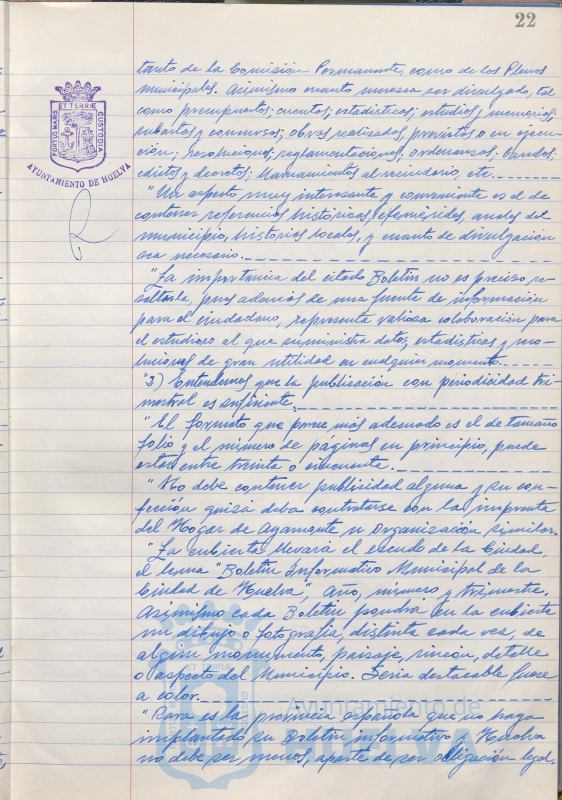 22
tanto de la Comisión Permanente, como de los Plenos
municipales. Asimismo cuanto merezca ser divulgado, tal
como presupuestos; cuentas; estadísticas; estudios; memorias;
subastas y concursos; obras realizadas, previstas o en ejecu-
ción; resoluciones; reglamentaciones; ordenanzas; bandos;
edictos y decretos; llamamientos al vecindario, etc.
"Un aspecto muy interesante y conveniente es el de
contener referencias históricas, efemérides, anales del
municipio, historias locales, y cuanto de divulgación
sea necesario.
"La importancia del citado Boletín no es preciso re-
saltarla, pues además de una fuente de información
para el ciudadano, representa valiosa colaboración para
el estudioso al que suministra datos, estadísticas y reso-
luciones de gran utilidad en cualquier momento.
"3) Entendemos que la publicación con periodicidad tri-
mestral es suficiente.
"El formato que parece más adecuado es el de tamaño
folio y el número de páginas en principio, puede
estar entre treinta o cincuenta.
"No debe contener publicidad alguna y su con-
fección quizá deba contratarse con la imprenta
del Hogar de Ayamonte u Organización similar.
"La cubierta llevará el escudo de la Ciudad,
el lema "Boletín Informativo Municipal de la
Ciudad de Huelva", Año, número y trimestre.
Asimismo cada Boletín pondrá en la cubierta
un dibujo o fotografía, distinta cada vez, de
algún monumento, paisaje, rincón, detalle
o aspecto del Municipio. Sería destacable fuese
a color.
"Rara es la provincia española que no haya
implantado su Boletín informativo y Huelva
no debe ser menos, aparte de ser obligación legal,
PORTUS MARIS
ET TERRÆ
CUSTODIA
AYUNTAMIENTO DE HUELVA
ET TERRÆ
Ayuntamiento de
HUELVA